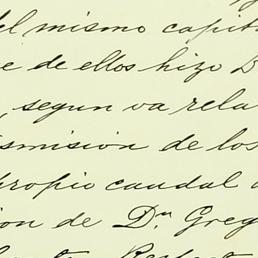 del mismo capit
e de ellos hizo D
, segun va rela
smision de los
propio caudal
ion de Dn Greg